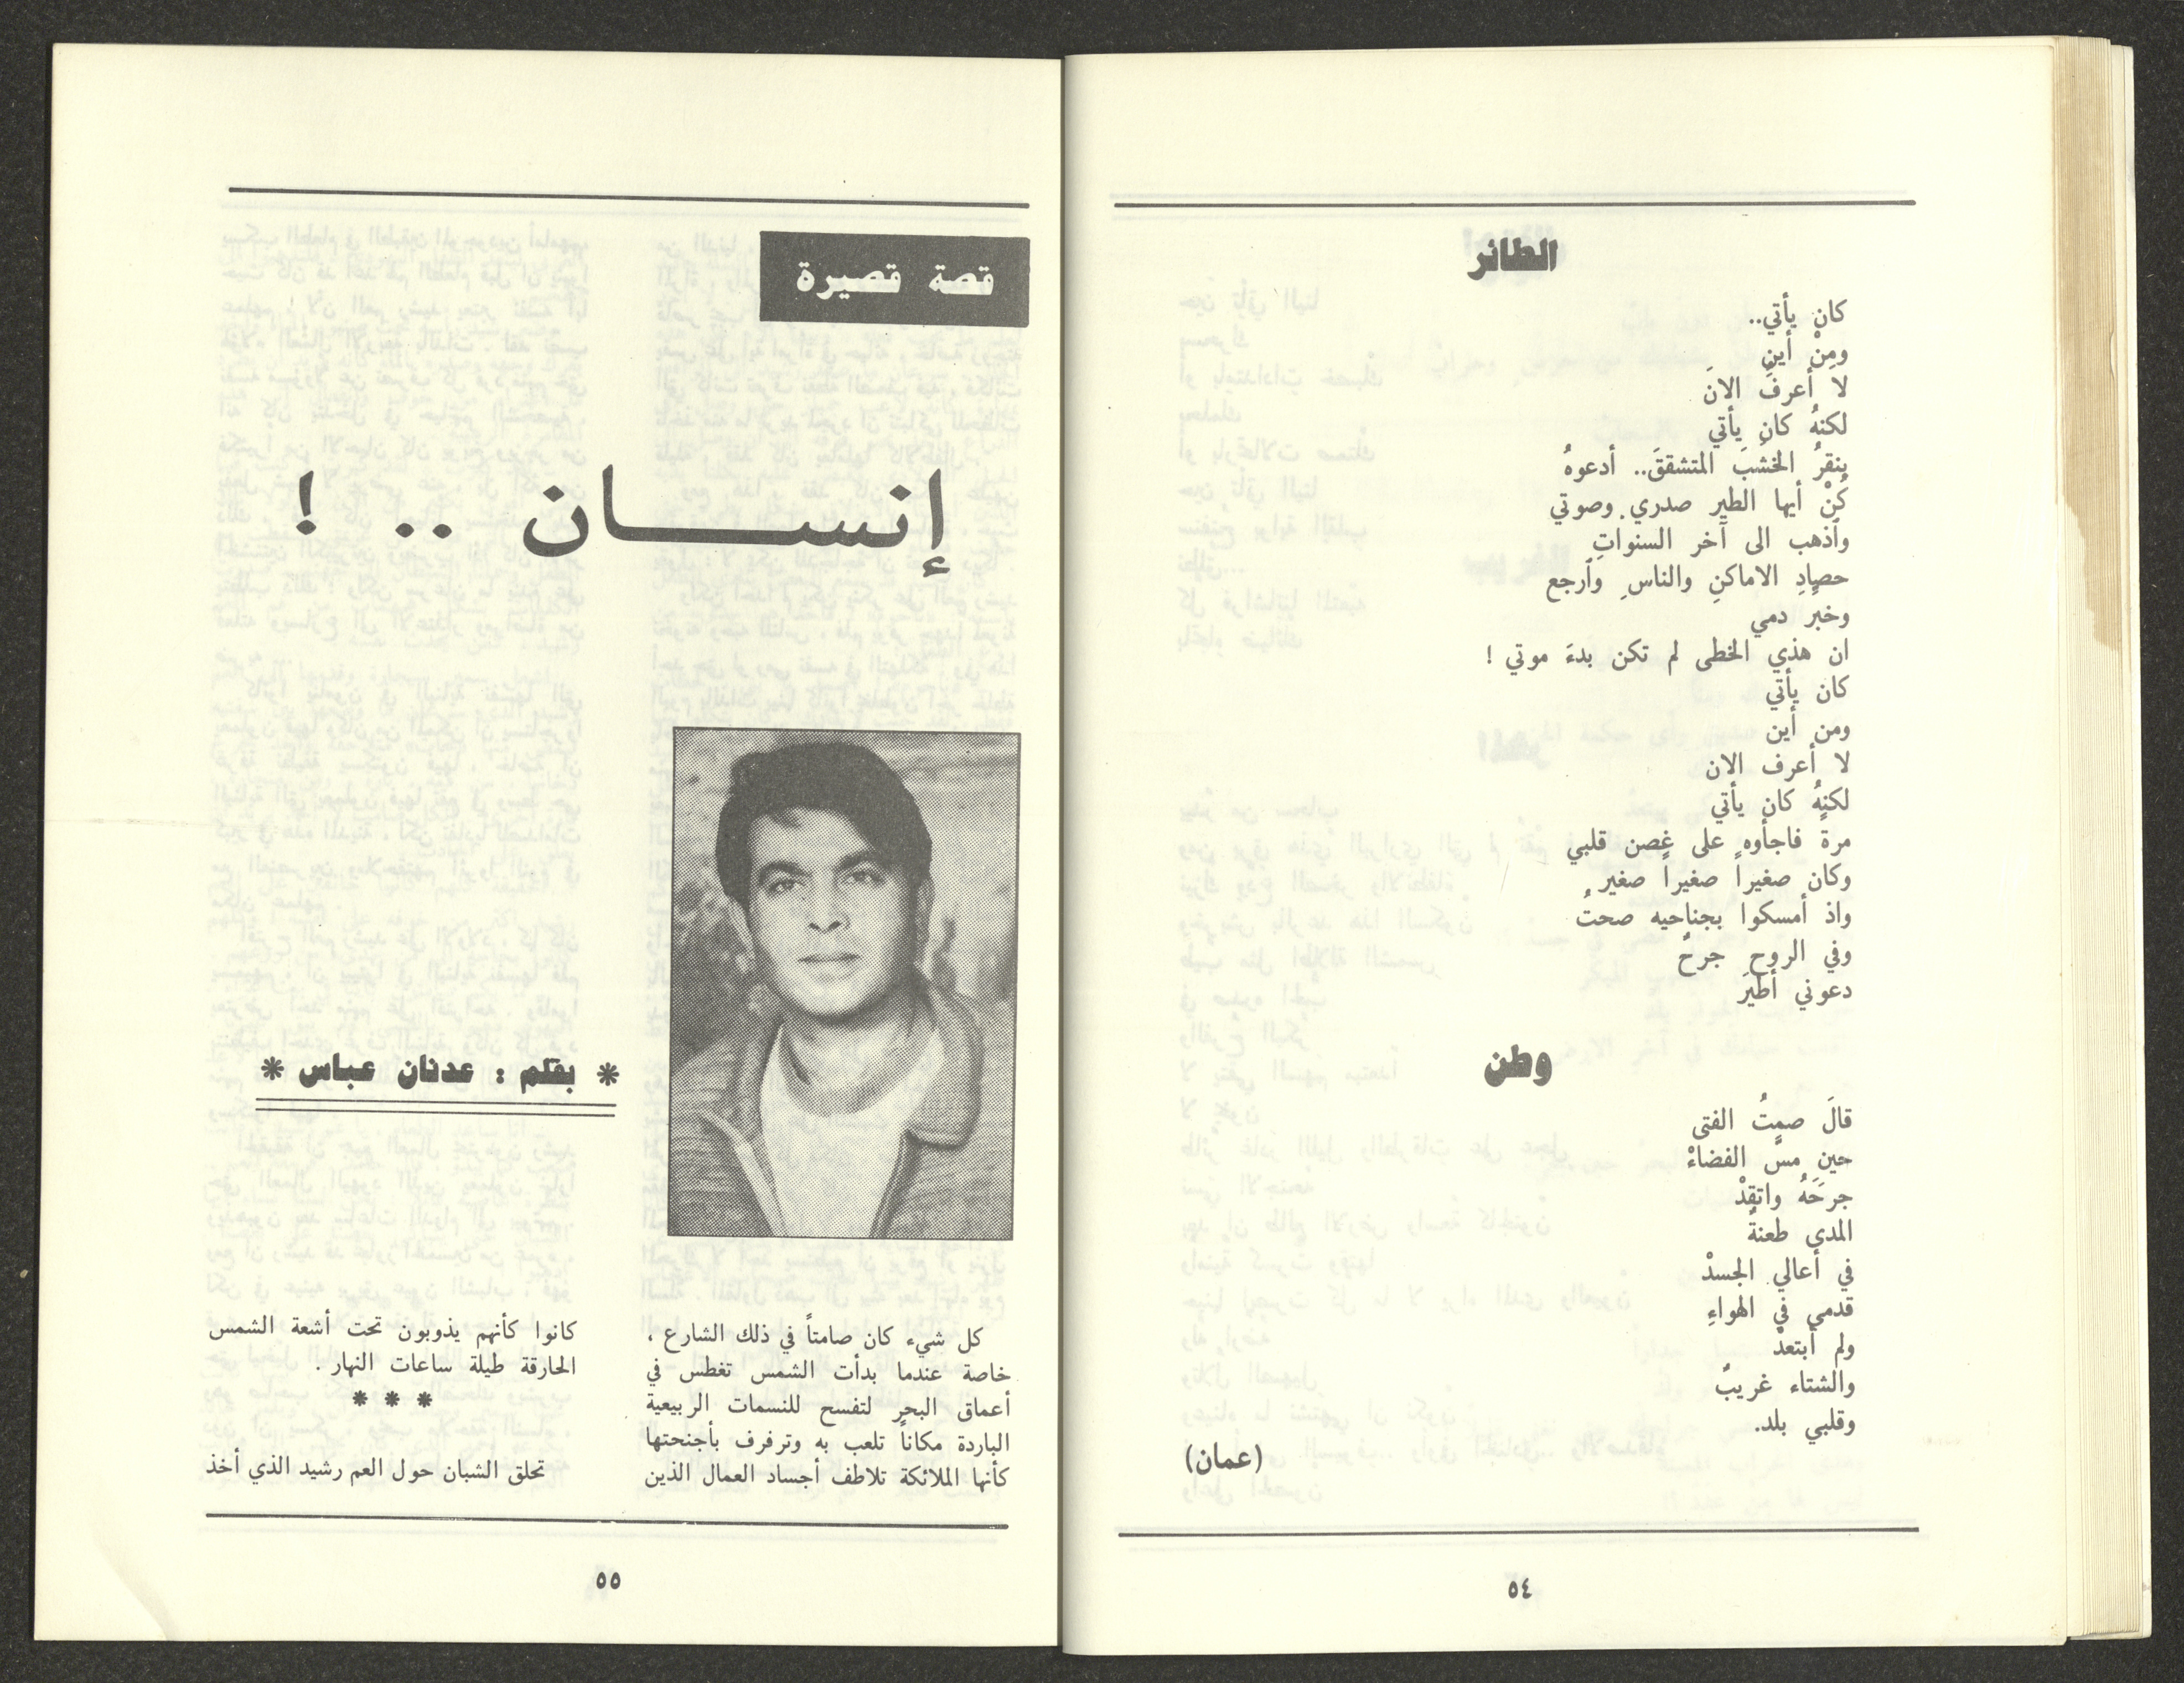 الطائر
كان يأتي..
ومِنْ أين
لا أعرفُ الانَ
لكنهُ كان يأتي
ينقرُ الخشبَ المتشققَ.. أدعوهُ
كُنْ أيها الطير صدري وصوتي
وآذهب الى آخر السنواتِ
حصادِ الاماكنِ والناسِ وآرجع
وخبّر دمي
ان هذي الخطى لم تكن بدءَ موتي !
كان يأتي
ومن أين
لا أعرف الان
لكنهُ كان يأتي
مرةً فاجأوه على غصن قلبي
وكان صغيراً صغيراً صغير
واذ أمسكوا بجناحيه صحتُ
وفي الروح جرحٌ
دعوني أطيرَ
وطن
قالَ صمتُ الفتى
حين مسَّ الفضاءْ
جرحَهُ واتقدْ
المدى طعنةٌ
في أعالي الجسدْ
قدمي في الهواءِ
ولم أبتعدْ
والشتاء غريبٌ
وقلبي بلد.
(عمان)
٥٤
قصة قصيرة
إنســـان .. !
* بقلم : عدنان عباس *
كل شيء كان صامتاً في ذلك الشارع ،
خاصة عندما بدأت الشمس تغطس في
أعماق البحر لتفسح للنسمات الربيعية
الباردة مكاناً تلعب به وترفرف بأجنحتها
كأنها الملائكة تلاطف أجساد العمال الذين
كانوا كأنهم يذوبون تحت أشعة الشمس
الحارقة طيلة ساعات النهار .
* * *
تحلق الشبان حول العم رشيد الذي أخذ
٥٥